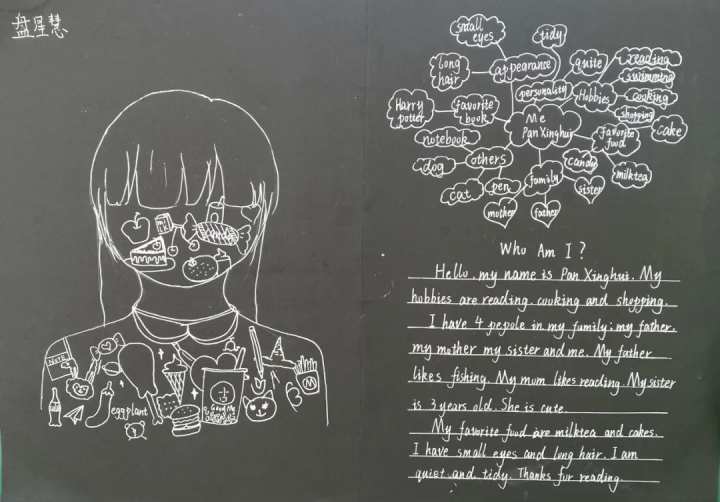 盘星慧
milk
NOTE
eggplant
Good Me
M
small
eyes
tidy
long
hair
appearance
quite
reading
swimming
personality
Hobbies
cooking
shopping
Harry
potter
favorite
book
Me
Pan Xinghui
favorite
food
cake
notebook
others
candy
milktea
dog
family
sister
cat
pen
mother
father
Who Am I?
Hello, my name is Pan Xinghui. My
hobbies are reading, cooking and shopping.
I have 4 pepole in my family: my father,
my mother my sister and me. My father
likes fishing. My mum likes reading. My sister
is 3 years old. She is cute.
My favorite food are milktea and cakes.
I have small eyes and long hair. I am
quiet and tidy. Thanks for reading.